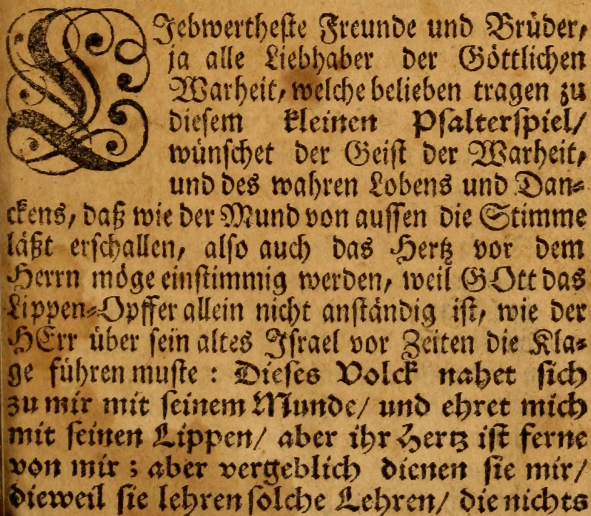 LJebwertheste Freunde und Brüder,
ja alle Liebhaber der Göttlichen
Warheit, welche belieben tragen zu
diesem kleinen Psalterspiel/
wünschet der Geist der Warheit,
und des wahren Lobens und Dan⸗
ckens, daß wie der Mund von aussen die Stimme
läßt erschallen, also auch das Hertz vor dem
Herrn möge einstimmig werden, weil GOtt das
Lippen⸗Opffer allein nicht anständig ist, wie der
HErr über sein altes Israel vor Zeiten die Kla⸗
ge führen muste : Dieses Volck nahet sich
zu mir mit seinem Munde/ und ehret mich
mit seinen Lippen/ aber ihr Hertz ist ferne
von mir ; aber vergeblich dienen sie mir/
dieweil sie lehren solche Lehren/ die nichts